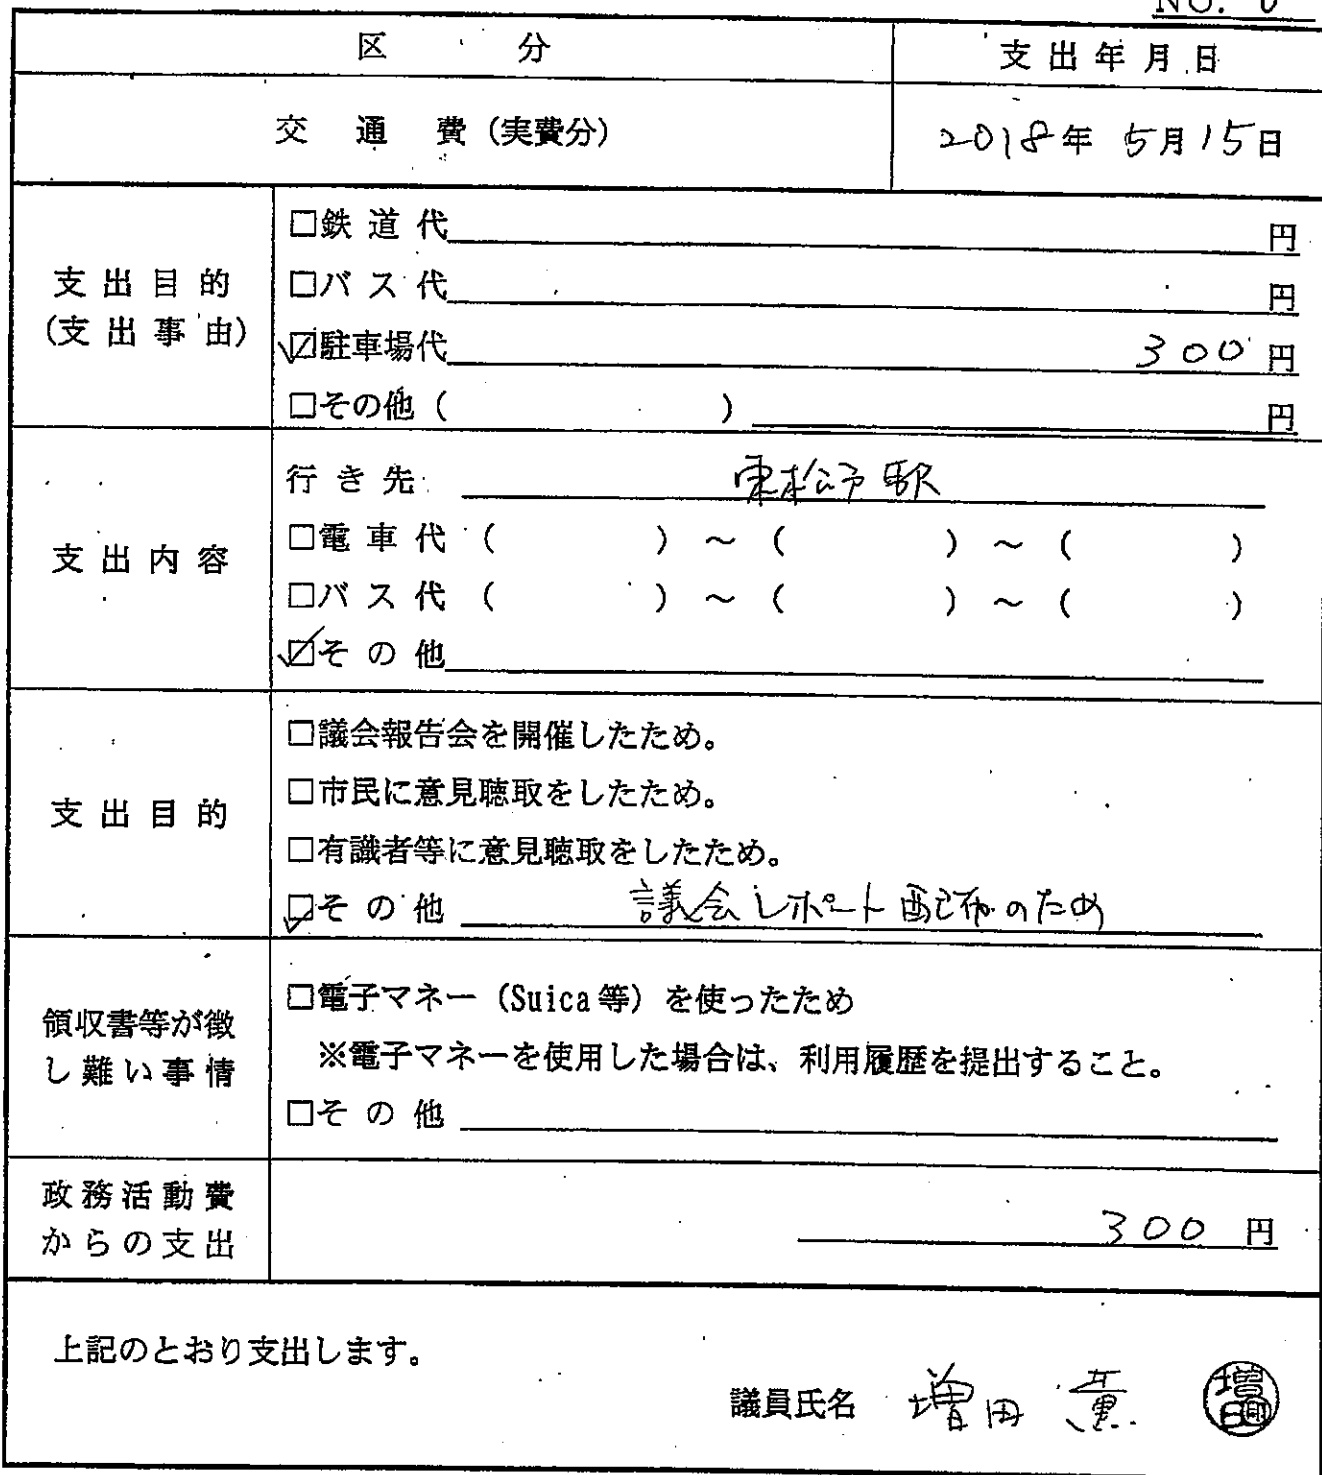 NO. 6
区 分
支出年月日
交 通 費(実費分)
2018年 5月15日
支出目的
(支出事由)
□鉄道代 円
□バス代 円
☑駐車場代 300円
□その他( ) 円
支出内容
行き先 東松戸駅
□電車代( )~( )~( )
□バス代( )~( )~( )
☑その他
支出目的
□議会報告会を開催したため。
□市民に意見聴取をしたため。
□有識者等に意見聴取をしたため。
☑その他 議会レポート配布のため
領収書等が徴
し難い事情
□電子マネー(Suica等)を使ったため
※電子マネーを使用した場合は、利用履歴を提出すること。
□その他
政務活動費
からの支出
300 円
上記のとおり支出します。
議員氏名 増田 薫 増田